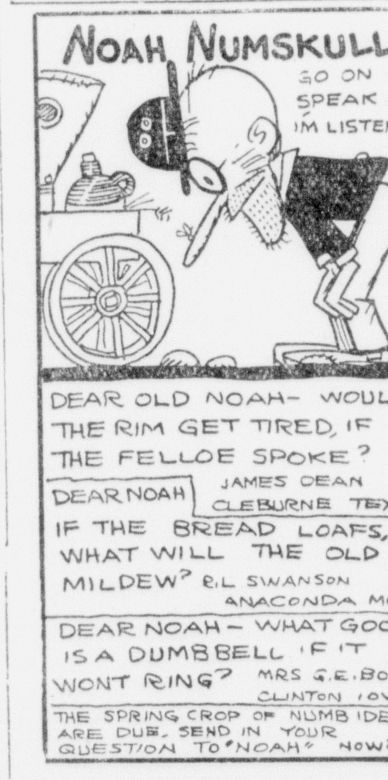 NOAH NUMSKULL
GO ON
SPEAK
I'M LISTE
DEAR OLD NOAH- WOUL
THE RIM GET TIRED, IF
THE FELLOE SPOKE?
JAMES DEAN
DEAR NOAH
CLEBURNE TEX
IF THE BREAD LOAFS,
WHAT WILL THE OLD
MILDEW? R.L SWANSON
ANACONDA MO
DEAR NOAH- WHAT GOO
IS A DUMBBELL IF IT
WONT RING? MRS G.E. BO
CLINTON IOW
THE SPRING CROP OF NUMB IDE
ARE DUE. SEND IN YOUR
QUESTION TO "NOAH" NOW